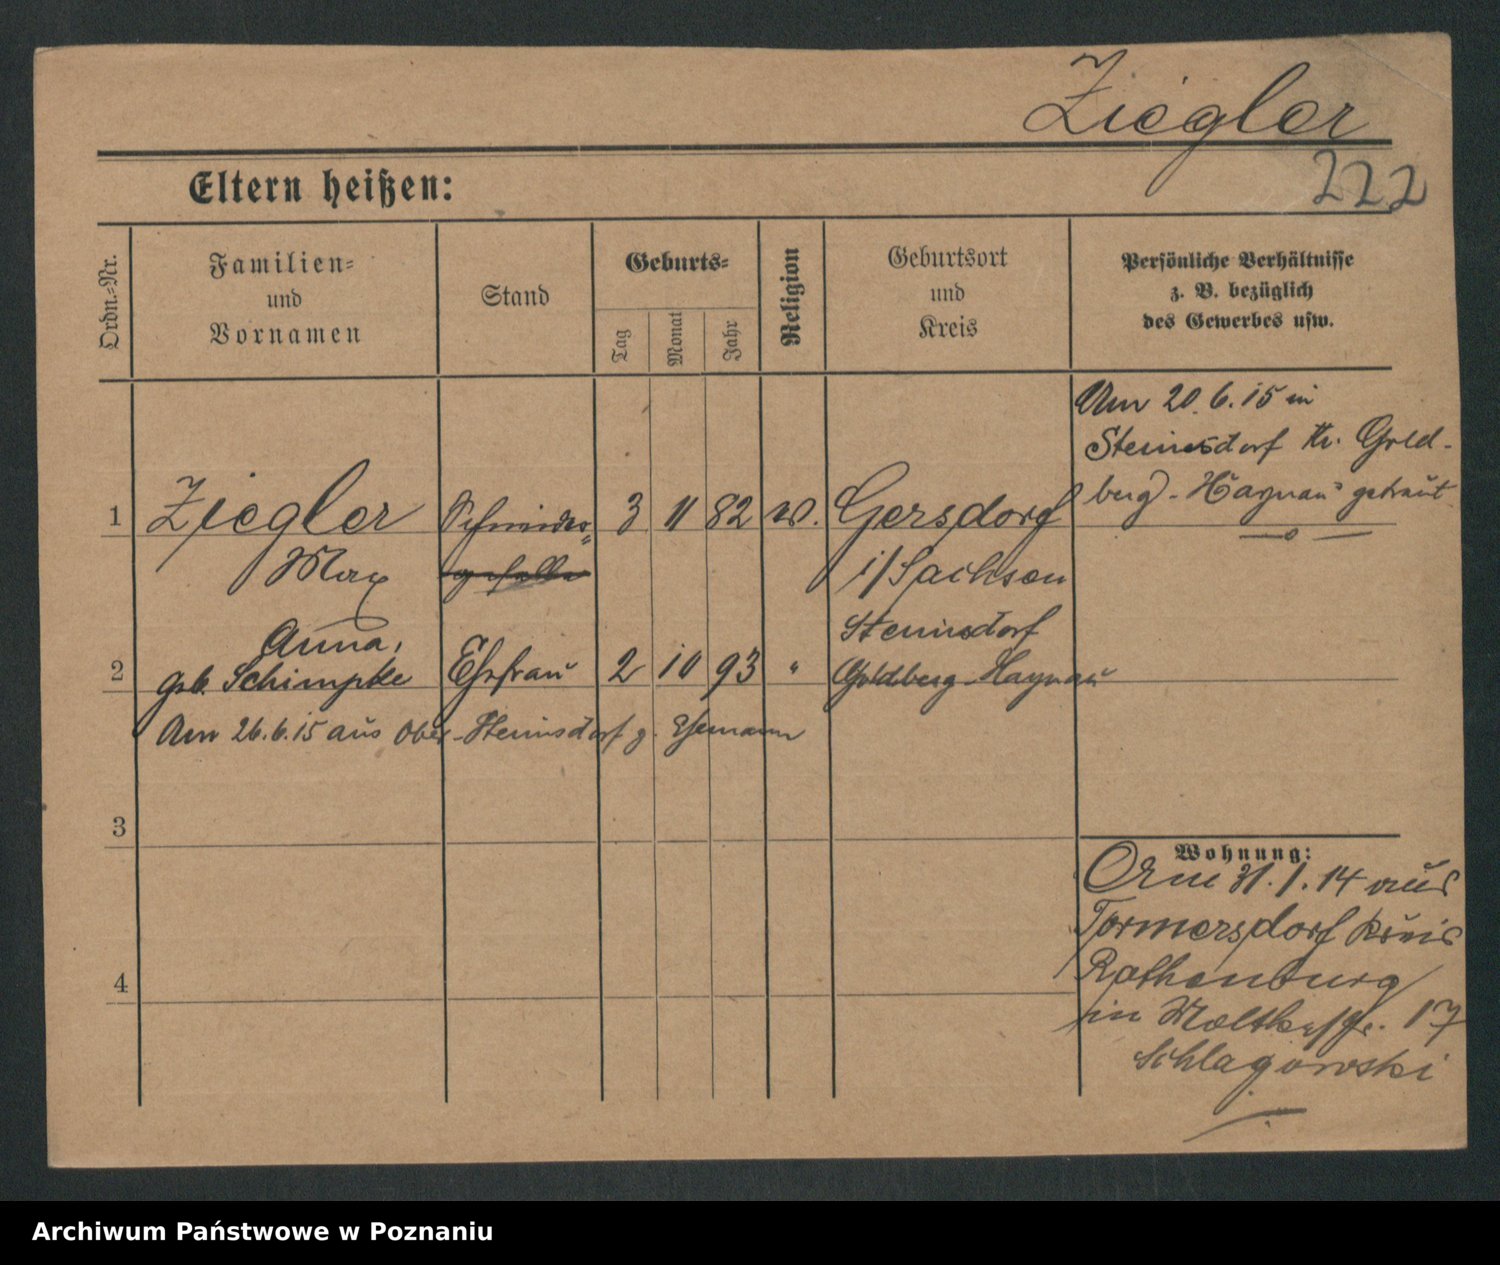 Ziegler
222
Eltern heißen:
Ordn.=Nr.
Familien=
und
Vornamen
Stand
Geburts=
Tag
Monat
Jahr
Religion
Geburtsort
und
Kreis
Persönliche Verhältnisse
z. B. bezüglich
des Gewerbes usw.
Am 20.6.15 in
Steinsdorf Kr. Gold-
berg-Haynau getraut
1 Ziegler 3 11 82 Gersdorf
Max geselle i/Sachsen
Anna, Steinsdorf
2 geb. Schimpke Ehefrau 2 10 93 " Goldberg-Haynau
Am 26.6.15 aus Ober-Steinsdorf z. Ehemann
3
4
Wohnung:
Am 31.1.14 aus
Tormersdorf Kreis
Rothenburg
in Moltkestr. 17
Schlagowski
Archiwum Państwowe w Poznaniu